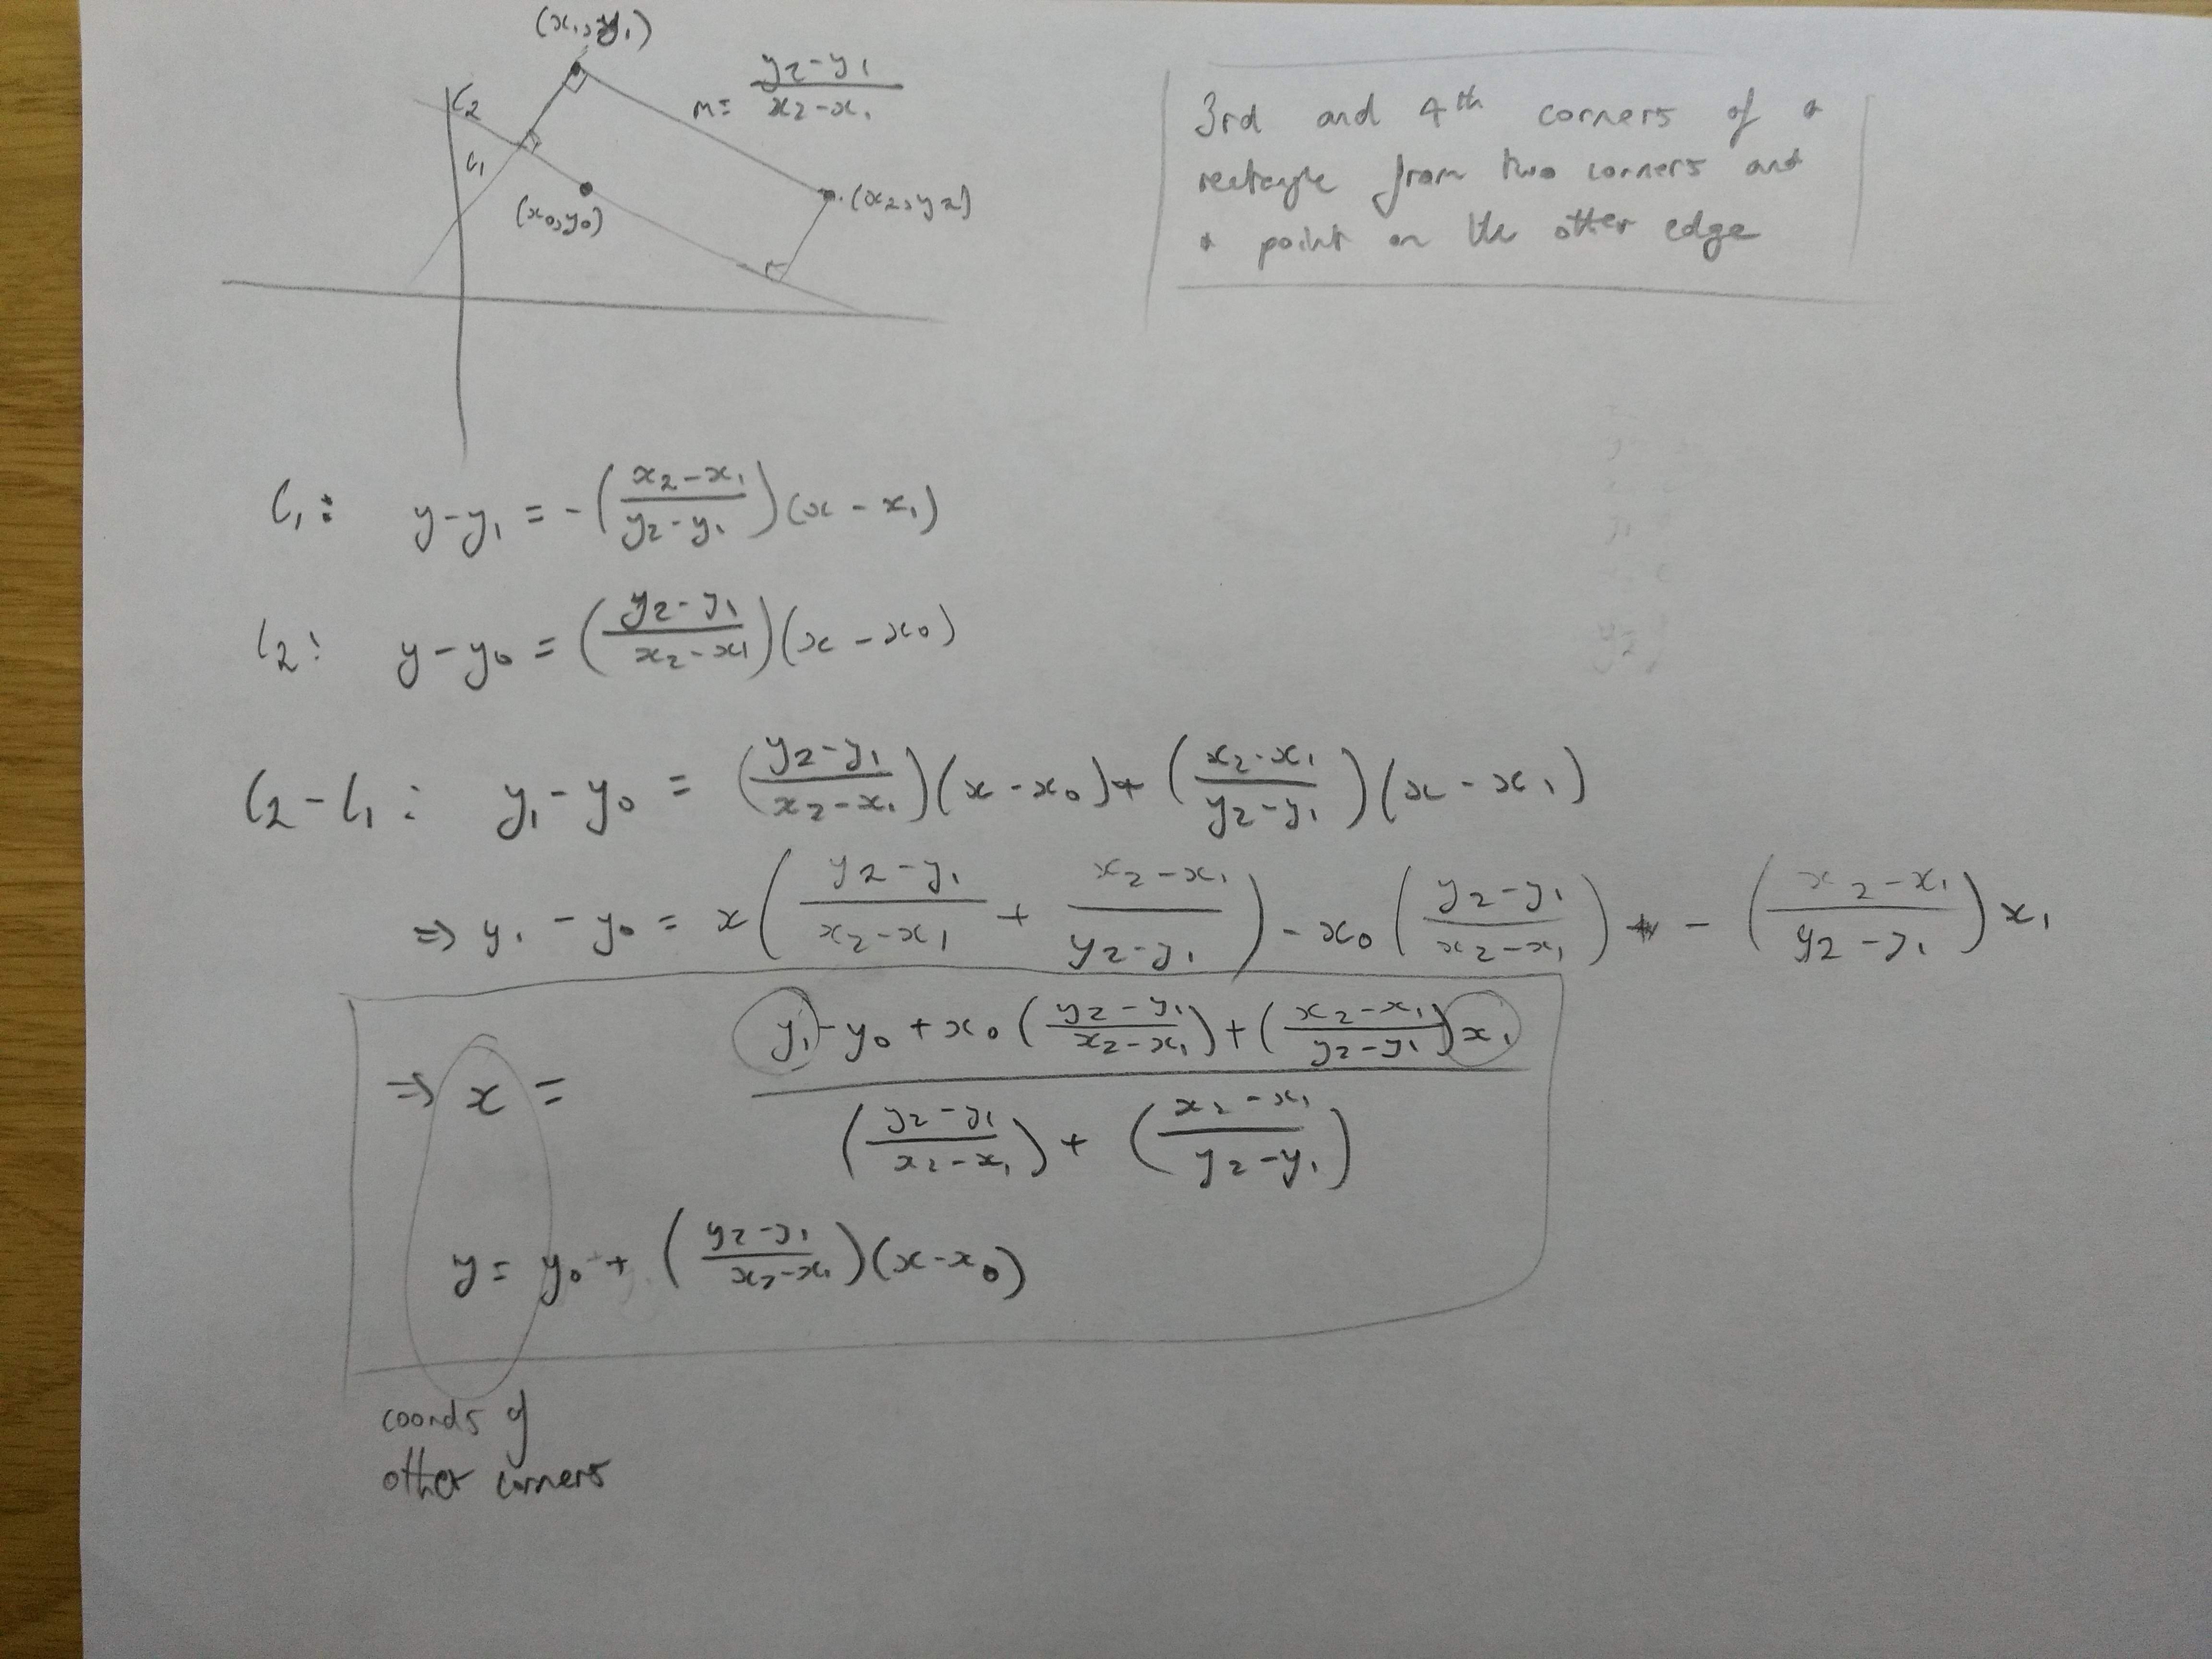 (x₁,y₁)
m= (y₂-y₁)/(x₂-x₁)
l₂
l₁
(x₀,y₀)
(x₂,y₂)
3rd and 4th corners of a
rectagle from two corners and
a point on the other edge
l₁: y-y₁ = -((x₂-x₁)/(y₂-y₁))(x - x₁)
l₂: y-y₀ = ((y₂-y₁)/(x₂-x₁))(x - x₀)
l₂-l₁: y₁-y₀ = ((y₂-y₁)/(x₂-x₁))(x-x₀)+((x₂-x₁)/(y₂-y₁))(x-x₁)
⇒ y₁-y₀ = x((y₂-y₁)/(x₂-x₁) + (x₂-x₁)/(y₂-y₁)) - x₀((y₂-y₁)/(x₂-x₁)) - ((x₂-x₁)/(y₂-y₁))x₁
⇒ x = (y₁-y₀+x₀((y₂-y₁)/(x₂-x₁))+((x₂-x₁)/(y₂-y₁))x₁)/(((y₂-y₁)/(x₂-x₁))+((x₂-x₁)/(y₂-y₁)))
y= y₀+((y₂-y₁)/(x₂-x₁))(x-x₀)
coords of
other corners